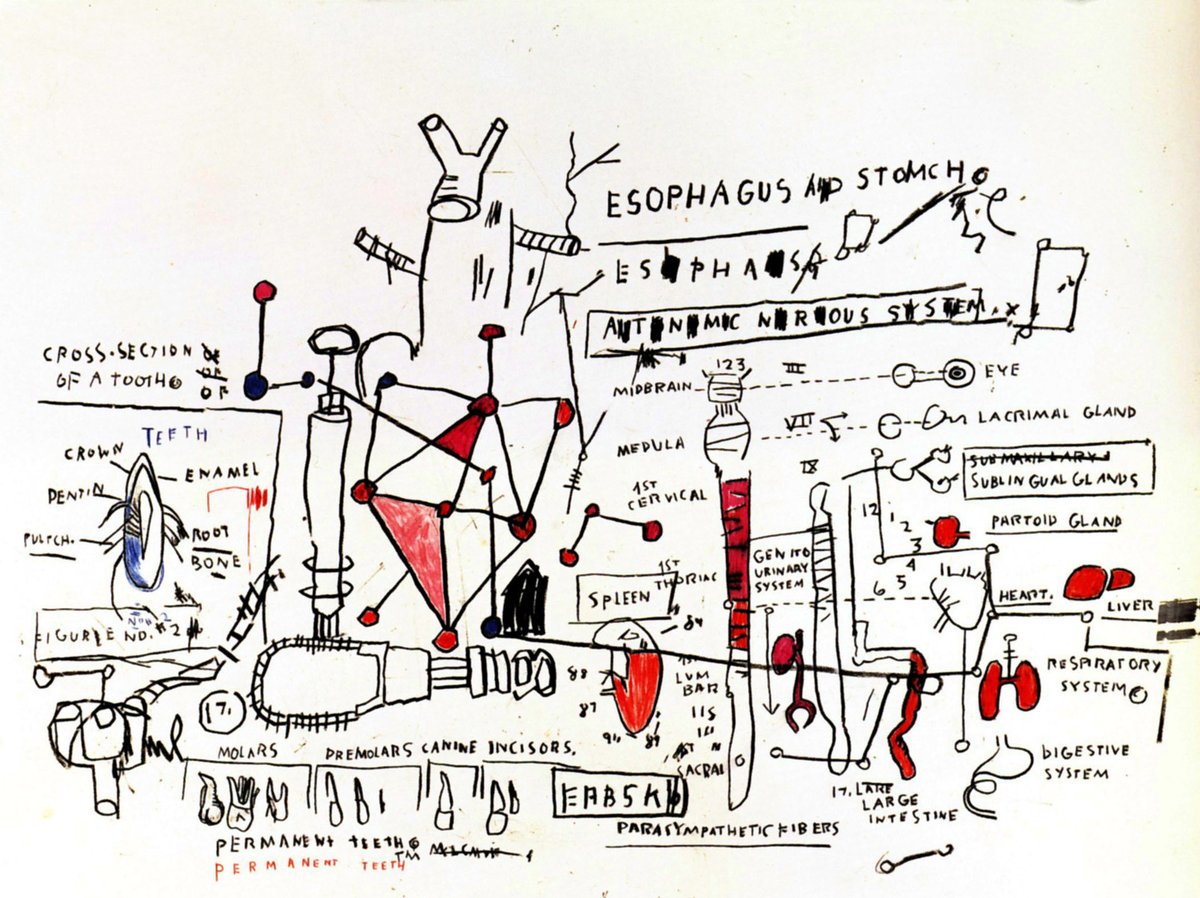 ESOPHAGUS AND STOMCH
ESOPHAGS
AUTONOMIC NERVOUS SYSTEM. X
CROSS-SECTION OF
OF A TOOTH OF
OF
TEETH
CROWN
ENAMEL
DENTIN
PULTCH.
ROOT
BONE
FIGURE NO. #2
17.
MOLARS
PREMOLARS CANINE INCISORS.
PERMANENT TEETH
PERMANENT TEETH TM
MIDBRAIN
123
III
EYE
MEDULA
VII
LACRIMAL GLAND
IX
SUBMAXILLARY
SUBLINGUAL GLANDS
1ST
CERVICAL
12 1
2
3
4
5
6
PARTOID GLAND
GENITO
URINARY
SYSTEM
1ST
THORIAC
SPLEEN
HEART.
LIVER
84
88
87
89
1ST
LUM
BAR
115
1ST
SACRAL
RESPIRATORY
SYSTEM
DIGESTIVE
SYSTEM
17. LARE
LARGE
INTESTINE
PARASYMPATHETIC FIBERS